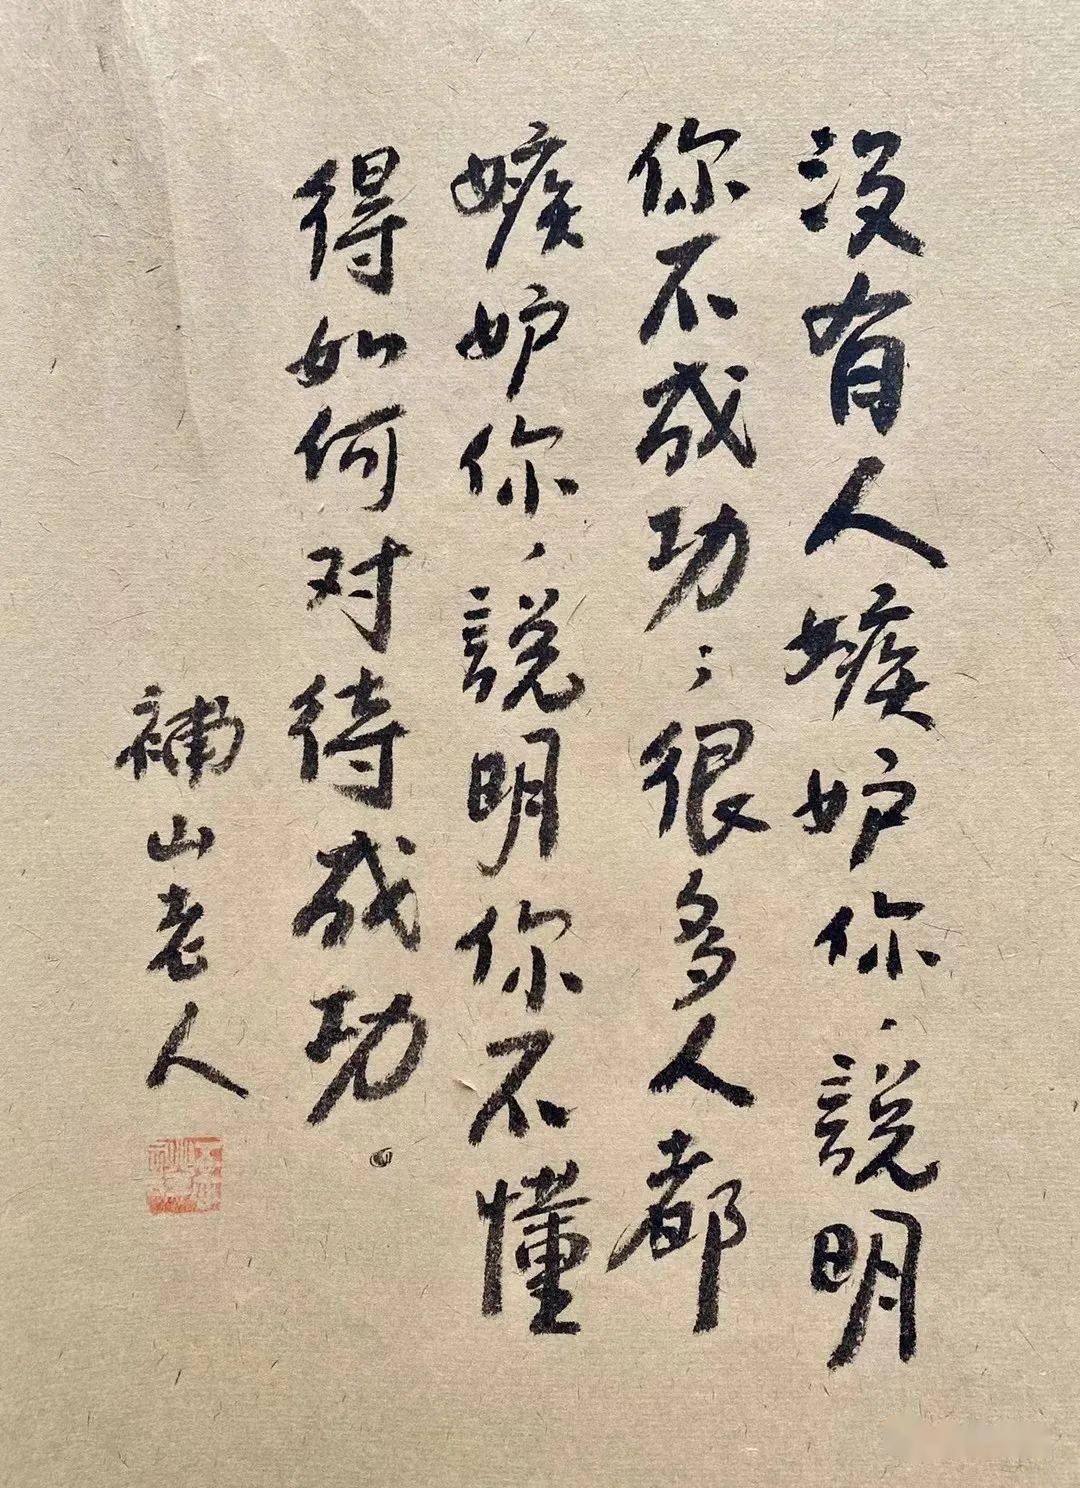 没有人嫉妒你，說明
你不成功；很多人都
嫉妒你，說明你不懂
得如何对待成功。
補山老人